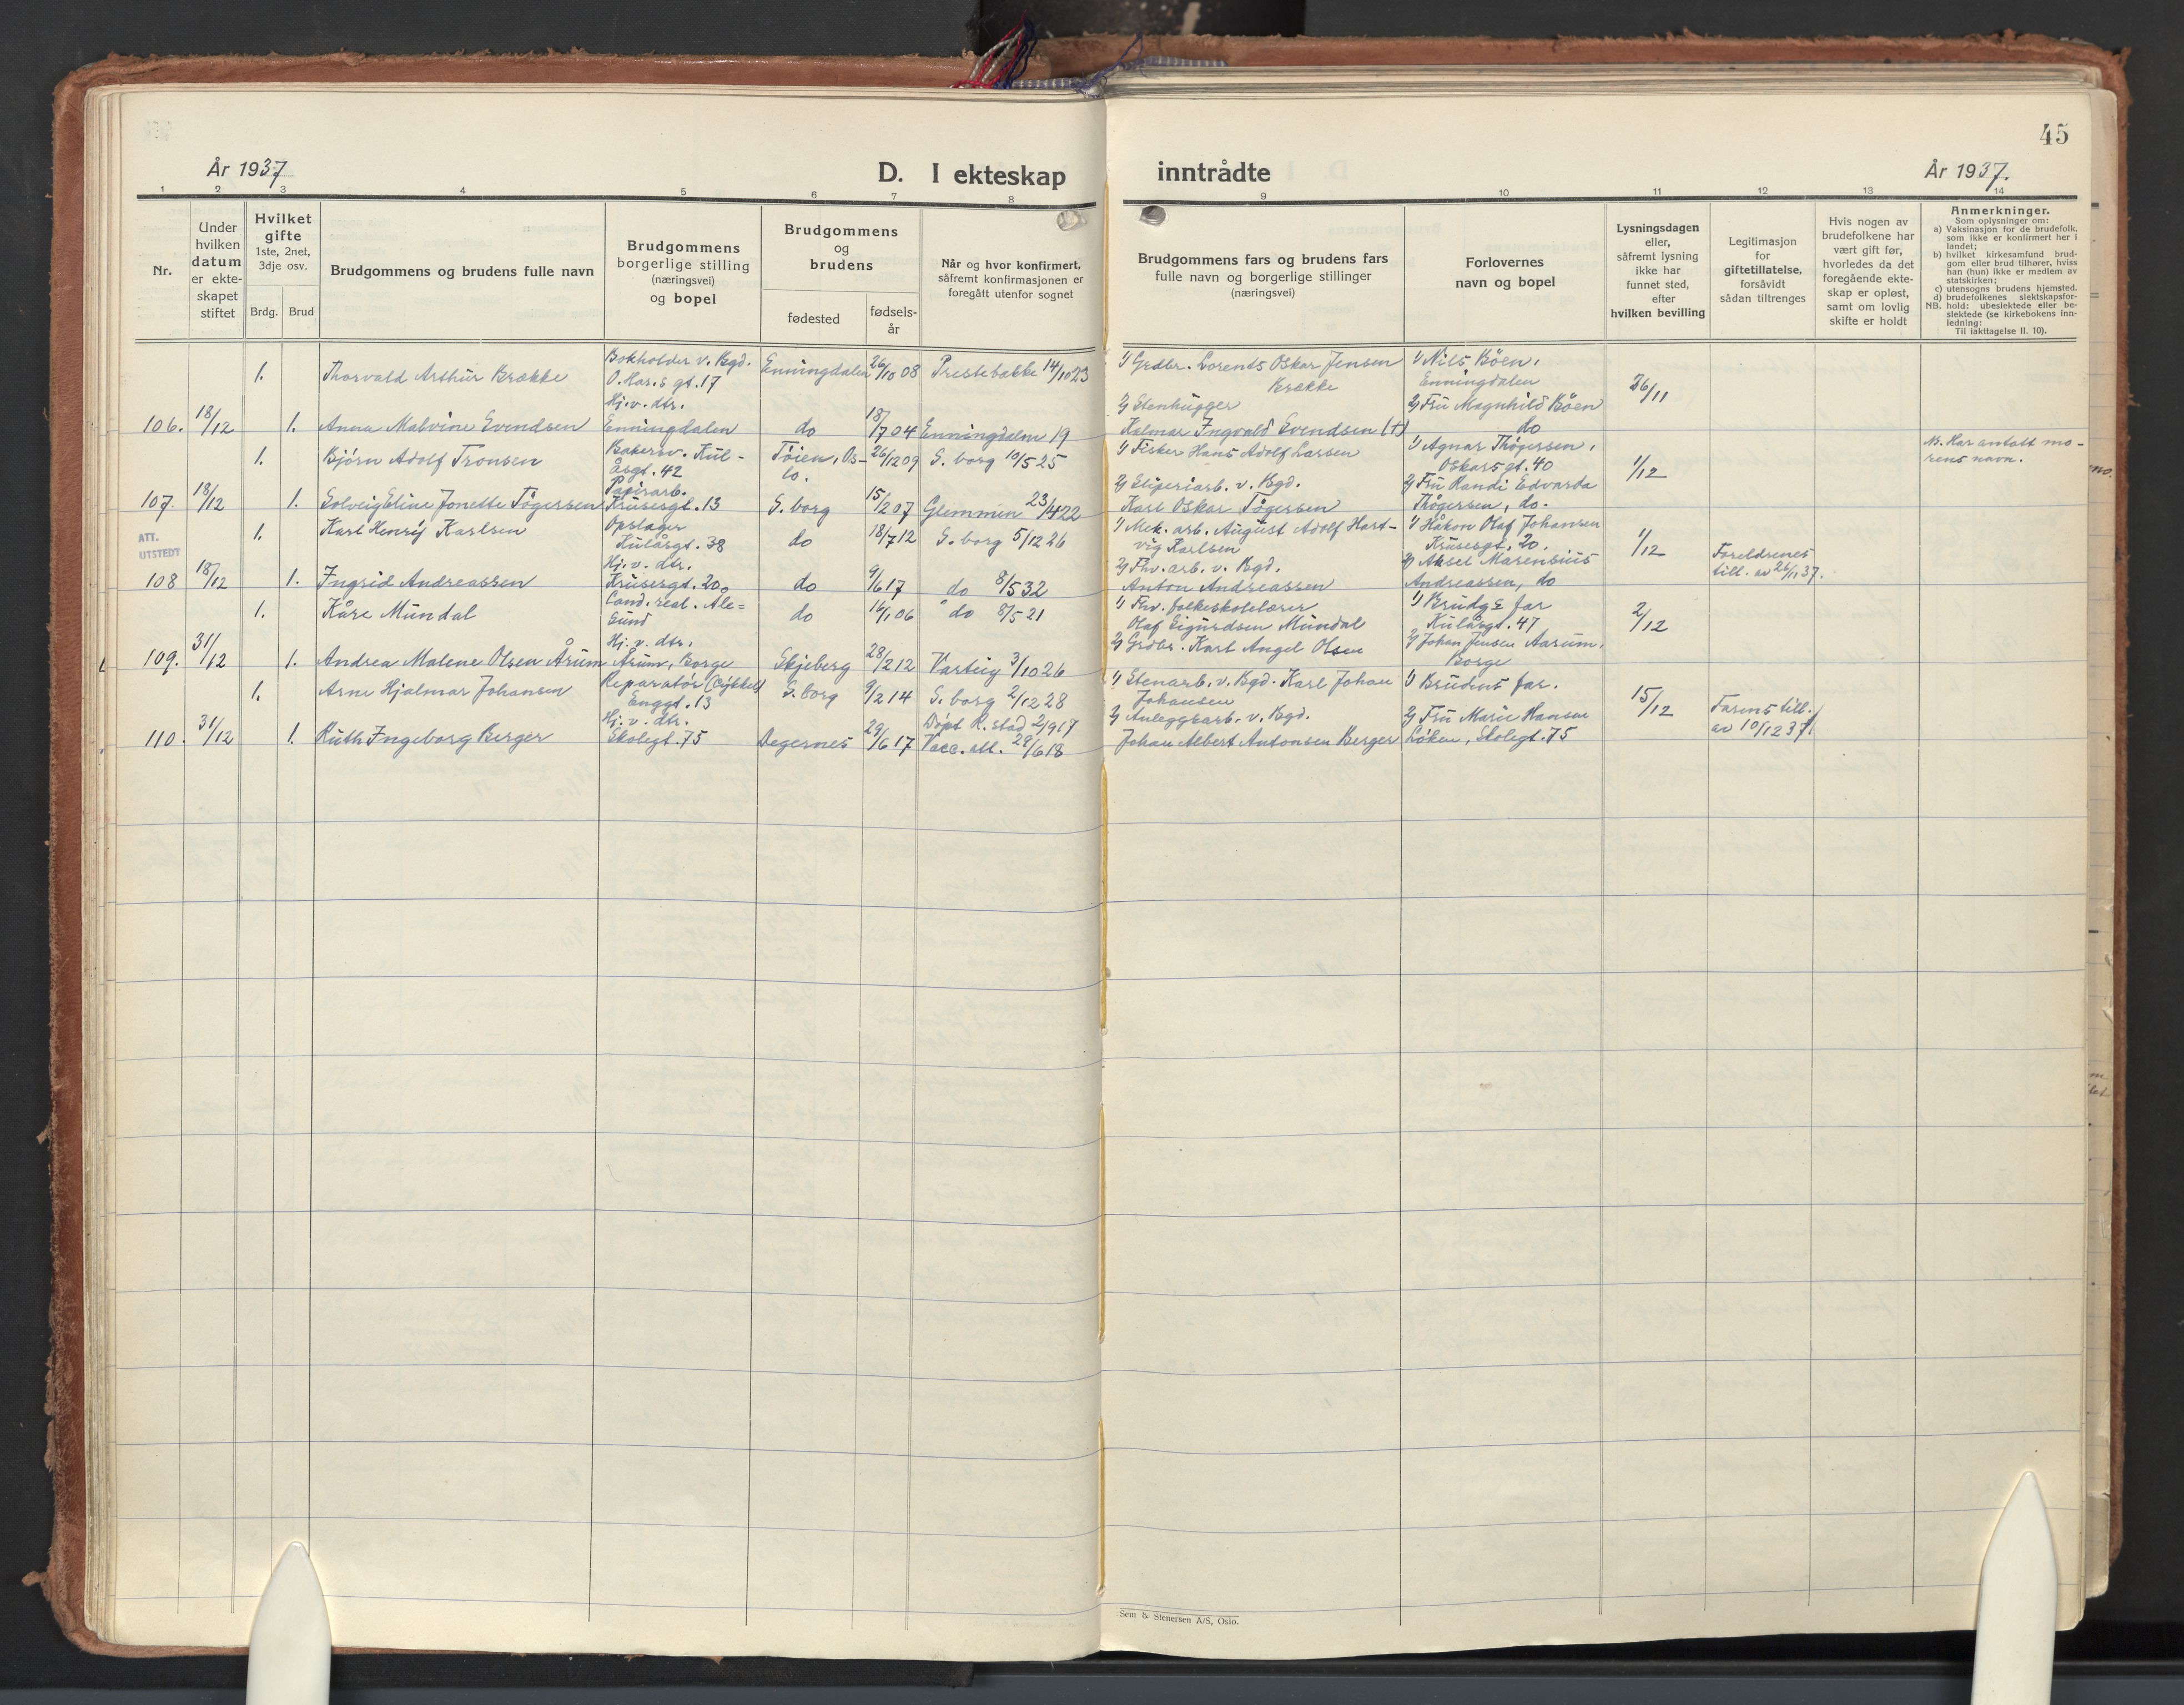 45
År 1937
D. I ekteskap inntrådte
År 1937.
1 2 3 4 5 6 7 8 9 10 11 12 13 14
Nr.
Under
hvilken
datum
er ekte-
skapet
stiftet
Hvilket
gifte
1ste, 2net,
3dje osv.
Brdg. Brud
Brudgommens og brudens fulle navn
Brudgommens
borgerlige stilling
(næringsvei)
og bopel
Brudgommens
og
brudens
fødested
fødsels-
år
Når og hvor konfirmert,
såfremt konfirmasjonen er
foregått utenfor sognet
Brudgommens fars og brudens fars
fulle navn og borgerlige stillinger
(næringsvei)
Forlovernes
navn og bopel
Lysningsdagen
eller,
såfremt lysning
ikke har
funnet sted,
efter
hvilken bevilling
Legitimasjon
for
giftetillatelse,
forsåvidt
sådan tiltrenges
Hvis nogen av
brudefolkene har
vært gift før,
hvorledes da det
foregående ekte-
skap er opløst,
samt om lovlig
skifte er holdt
Anmerkninger.
Som oplysninger om:
a) Vaksinasjon for de brudefolk,
som ikke er konfirmert her i
landet;
b) hvilket kirkesamfund brud-
gom eller brud tilhører, hviss
han (hun) ikke er medlem av
statskirken;
c) utensogns brudens hjemsted.
d) brudefolkenes slektskapsfor-
NB. hold: ubeslektede eller be-
slektede (se kirkebokens inn-
ledning:
Til iakttagelse II. 10).
1. Thorvald Arthur Brække
Bokholder v. Bgd.
O. Har.s gt. 17
Enningdalen 26/10 08 Prestebakke 14/10 23
1) Grdbr. Lorents Oskar Jensen
Brække
1) Nils Bøen,
Enningdalen
26/11
106. 18/12 1. Anna Malvine Evendsen
Hj. v. dtr.
Enningdalen
do 18/7 04 Enningdalen 19
2) Stenhugger
Kalmar Ingvald Evendsen (†)
2) Fru Magnhild Bøen
do
1. Bjørn Adolf Tronsen
Bakersv. Kul-
åsgt. 42
Tøien, Os-
lo.
26/12 09 S. borg 10/5 25
1) Fisker Hans Adolf Larsen
1) Agnar Thøgersen,
Oskarsgt. 40
1/12
N. Har antatt mo-
rens navn.
107. 18/12 1. Solveig Eline Jonette Tøgersen
Papirarb.
Krusesgt. 13
S. borg 15/2 07 Glemmen 23/4 22
2) Sliperiarb. v. Bgd.
Karl Oskar Tøgersen
2) Fru Randi Edvarda
Thøgersen, do.
ATT.
UTSTEDT
1. Karl Henrij Karlsen
Opslager
Kulåsgt. 38
do 18/7 12 S. borg 5/12 26
1) Mek. arb. August Adolf Hart-
vig Karlsen
1) Håkon Olaf Johansen
Krusesgt. 20.
1/12
Foreldrenes
till. av 26/11 37.
108 18/12 1. Ingrid Andreassen
Hj. v. dtr.
Krusesgt. 20
do 9/6 17 do 8/5 32
2) Fhv. arb. v. Bgd.
Anton Andreassen
2) Aksel Marensius
Andreassen, do
1. Kåre Mundal
Cand. real. Ale=
sund
do 16/1 06 do 8/5 21
1) Fhv. folkeskolelærer
Olaf Sigurdsen Mundal
1) Brudg.s far
Kulåsgt. 47
2/12
109. 31/12 1. Andrea Malene Olsen Årum
Hj. v. dtr.
Årum, Borge
Skjeberg 28/2 12 Varteig 3/10 26
2) Grdbr. Karl Angel Olsen
2) Johan Jensen Aarum,
Borge
1. Arne Hjalmar Johansen
Reparatør (Cykkel)
Enggt. 13
S. borg 9/2 14 S. borg 2/12 28
1) Stenarb. v. Bgd. Karl Johan
Johansen
1) Brudens far.
15/12
Farens till.
av 10/12 37
110. 31/12 1. Ruth Ingeborg Berger
Hj. v. dtr.
Skolegt. 75
Degernes 29/6 17
Døpt R. stad 2/9 17
Vacc. att. 28/6 18
2) Anleggsarb. v. Bgd.
Johan Albert Antonsen Berger
2) Fru Marie Hansen
Løken, Skolegt. 75
Sem & Stenersen A/S, Oslo.